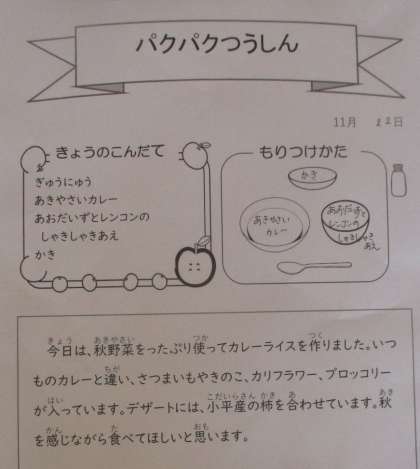 パクパクつうしん
11月 22日
きょうのこんだて
ぎゅうにゅう
あきやさいカレー
あおだいずとレンコンの
しゃきしゃきあえ
かき
もりつけかた
かき
あきやさい
カレー
あおだいずと
レンコンの
しゃきしゃき
あえ
今日は、秋野菜をたっぷり使ってカレーライスを作りました。いつ
ものカレーと違い、さつまいもやきのこ、カリフラワー、ブロッコリー
が入っています。デザートには、小平産の柿を合わせています。秋
を感じながら食べてほしいと思います。